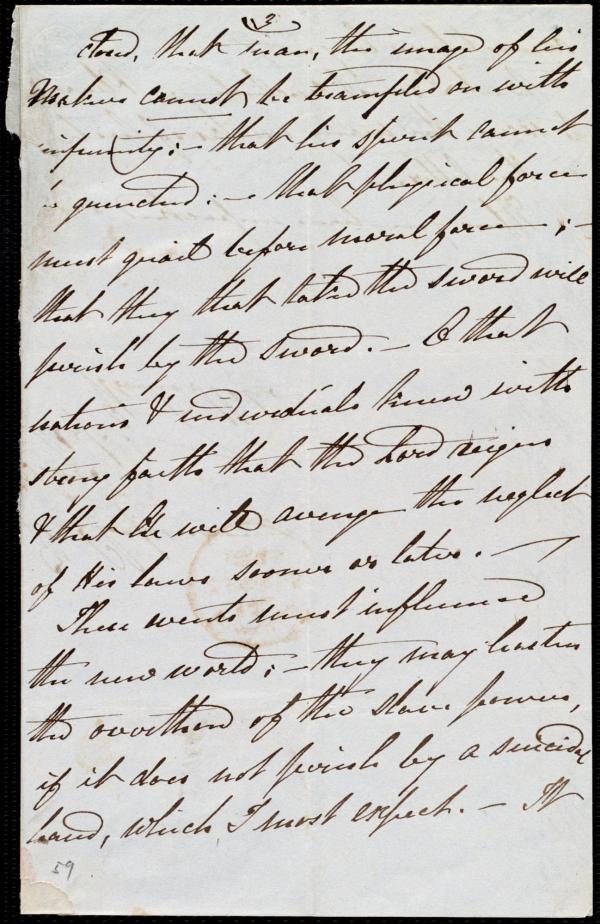 2
cloud, that man, the image of his
Maker cannot be trampled on with
impunity; – that his spirit cannot
quenched: – that physical force
must quail before moral force –; –
that they that take the sword will
perish by the sword. – O that
nations & individuals knew with
strong faith that the Lord reigns
& that He will avenge the neglect
of His laws sooner or later. –
These events must influence
the new world; – they may hasten
the overthrow of the slave power,
if it does not perish by a suicidal
hand, which I most expect. – It
59